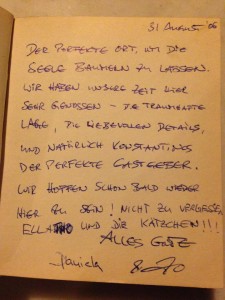 31 August '06
DER PERFEKTE ORT, UM DIE
SEELE BAUMELN ZU LASSEN.
WIR HABEN UNSERE ZEIT HIER
SEHR GENOSSEN – DIE TRAUMHAFTE
LAGE, DIE LIEBEVOLLEN DETAILS,
UND NATÜRLICH KONSTANTINOS
DER PERFEKTE GASTGEBER.
WIR HOFFEN SCHON BALD WIEDER
HIER ZU SEIN! NICHT ZU VERGESSEN,
UND DIE KÄTZCHEN!!!
ALLES GUTE
Daniela